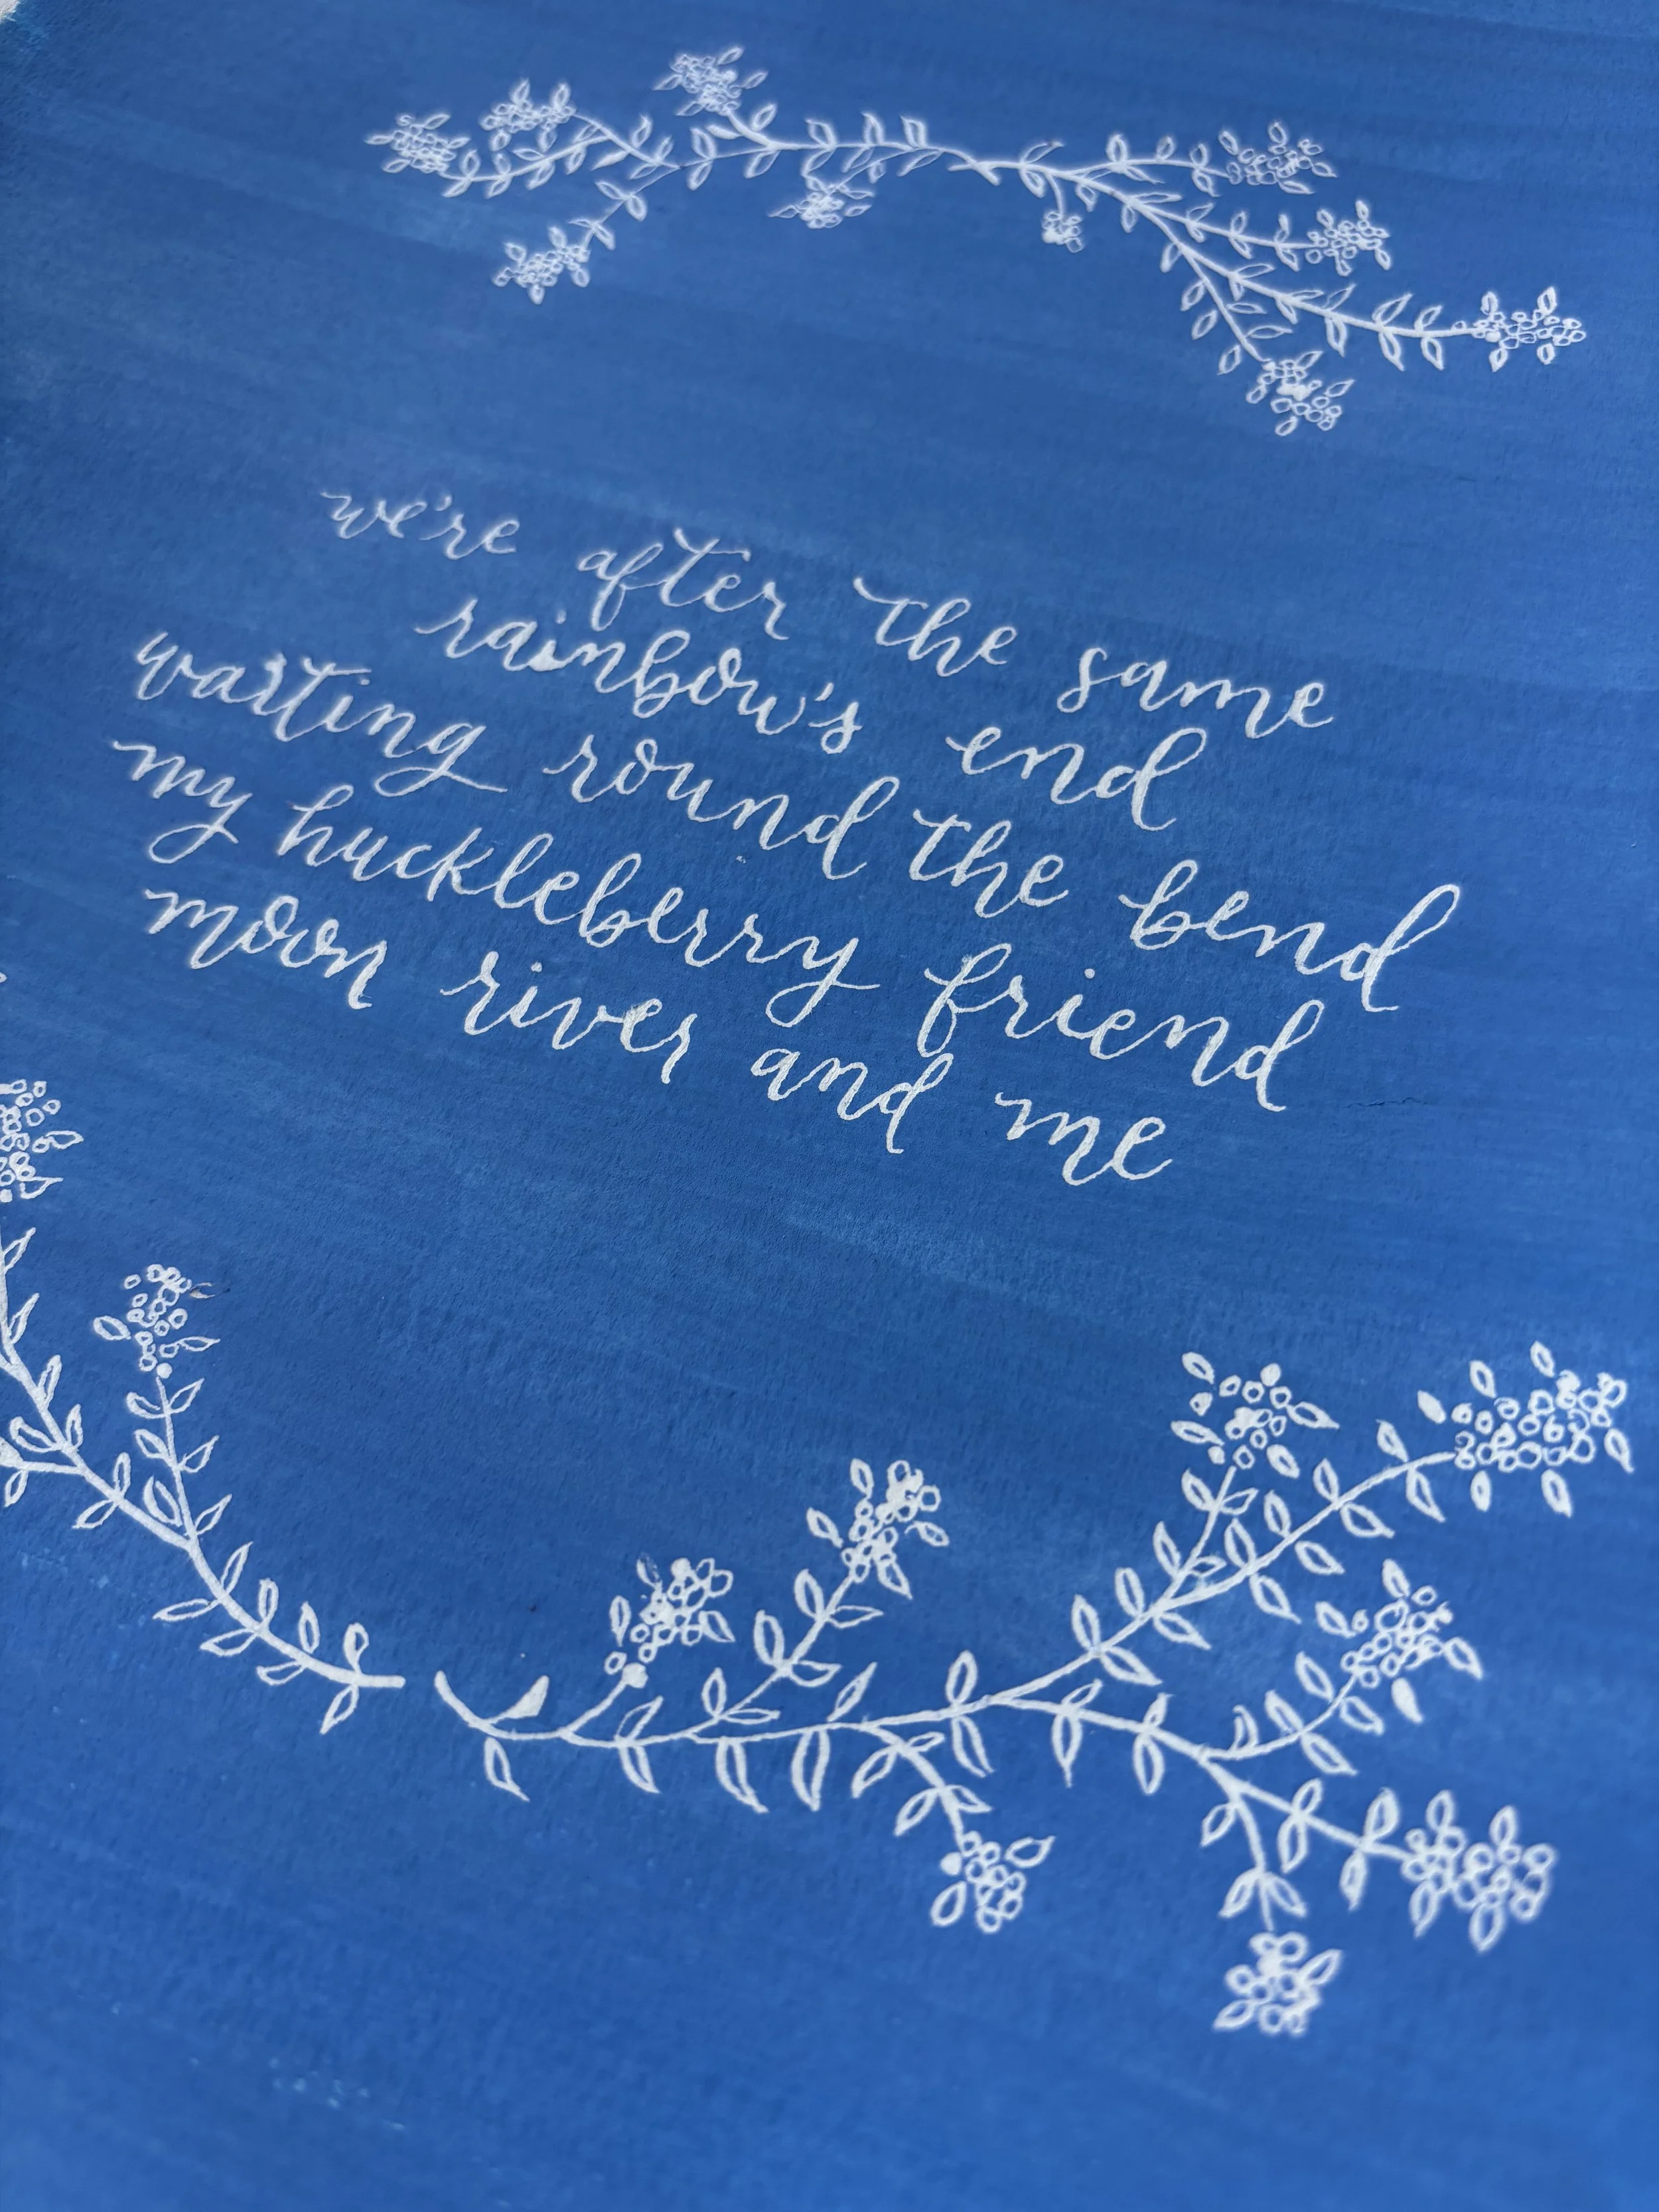 we're after the same
rainbow's end
waiting round the bend
my huckleberry friend
moon river and me